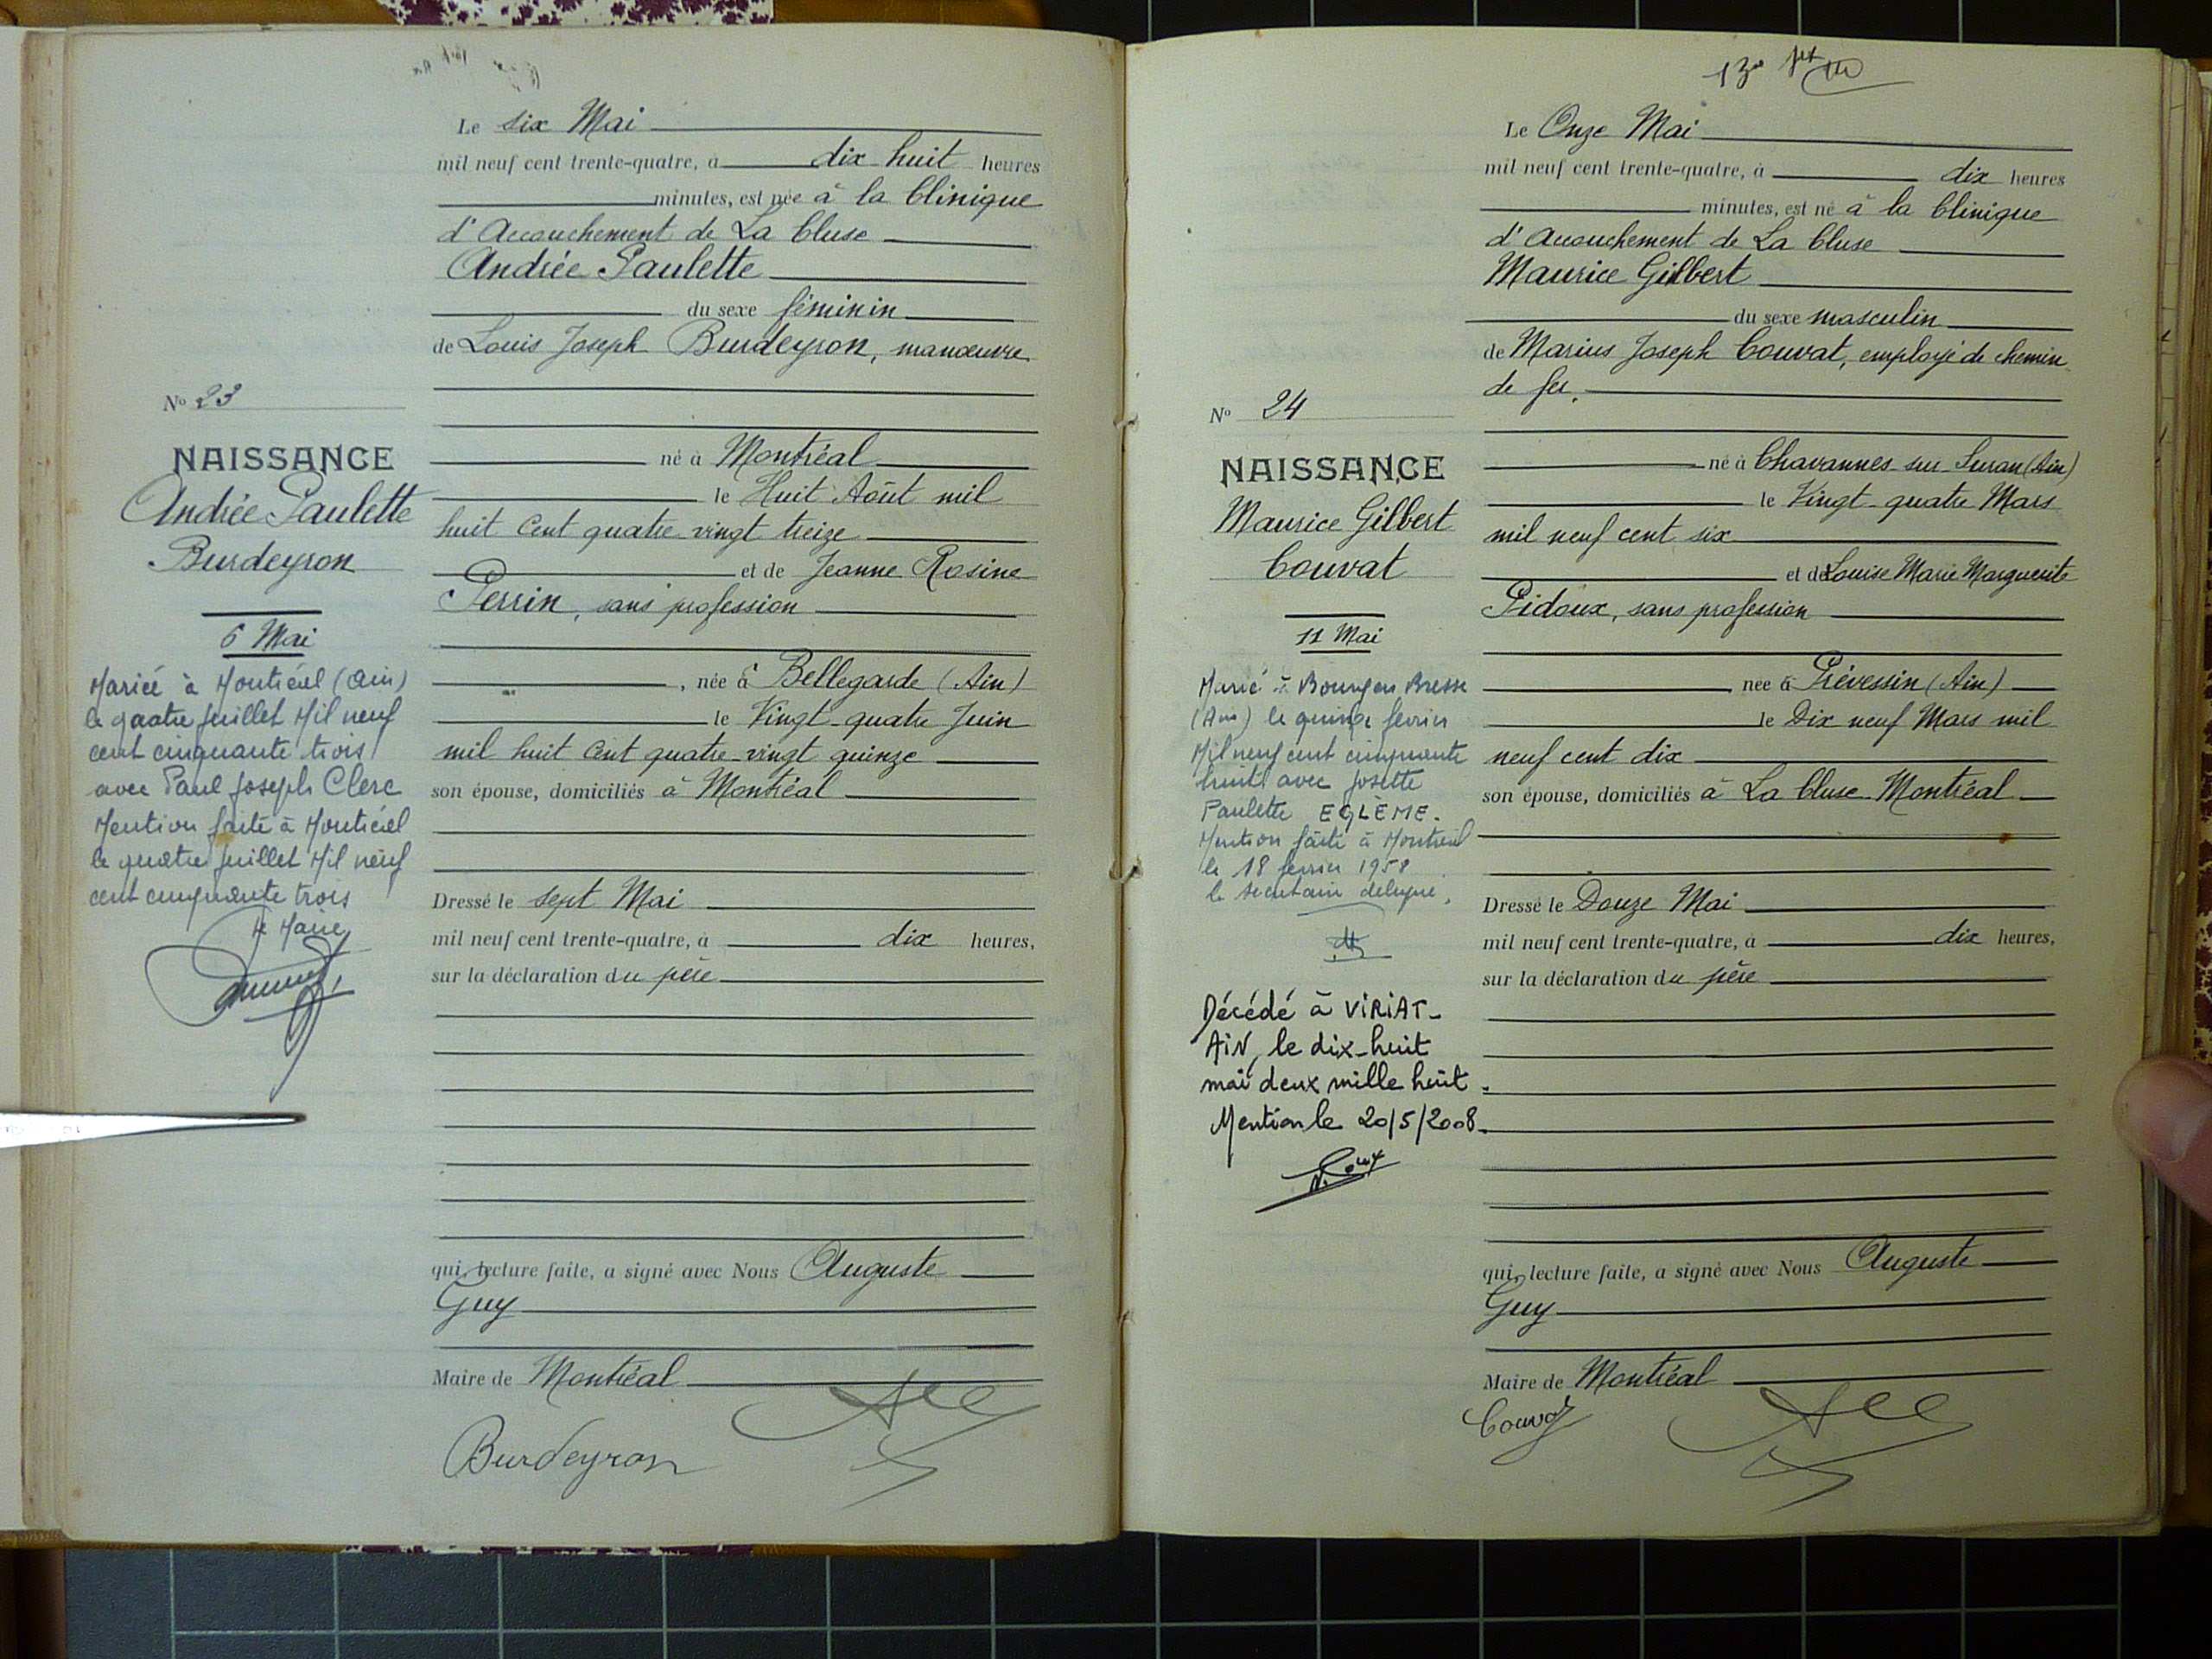 Le six Mai
mil neuf cent trente-quatre, à dix huit heures
minutes, est née à la Clinique
d'Accouchement de La Cluse
Andrée Paulette
du sexe féminin
de Louis Joseph Burdeyron, manœuvre
né à Montréal
le Huit Août mil
huit Cent quatre vingt treize
et de Jeanne Rosine
Perrin, sans profession
, née à Bellegarde (Ain)
le Vingt-quatre Juin
mil huit Cent quatre-vingt quinze
son épouse, domiciliés à Montréal
Dressé le sept Mai
mil neuf cent trente-quatre, à dix heures,
sur la déclaration du père
qui, lecture faite, a signé avec Nous Auguste
Guy
Maire de Montréal
Burdeyron
No 23
NAISSANCE
Andrée Paulette
Burdeyron
6 Mai
Mariée à Montréal (Ain)
le quatre juillet Mil neuf
cent cinquante trois
avec Paul Joseph Clerc
Mention faite à Montréal
le quatre juillet Mil neuf
cent cinquante trois
le Maire
Le Onze Mai
mil neuf cent trente-quatre, à dix heures
minutes, est né à la Clinique
d'Accouchement de La Cluse
Maurice Gilbert
du sexe masculin
de Marius Joseph Couvat, employé de chemin
de fer.
né à Chavannes-sur Suran (Ain)
le Vingt-quatre Mars
mil neuf cent six
et de Louise Marie Marguerite
Pidoux, sans profession
née à Prévessin (Ain)
le Dix neuf Mars mil
neuf cent dix
son épouse, domiciliés à La Cluse Montréal
Dressé le Douze Mai
mil neuf cent trente-quatre, à dix heures,
sur la déclaration du père
qui, lecture faite, a signé avec Nous Auguste
Guy
Maire de Montréal
Couvat
No 24
NAISSANCE
Maurice Gilbert
Couvat
11 Mai
Marié à Bourg en Bresse
(Ain) le quinze février
Mil neuf cent cinquante
huit avec Josette
Paulette EGLÈME.
Mention faite à Montréal
le 18 février 1958
le secrétaire délégué,
Décédé à VIRIAT-
AIN, le dix-huit
mai deux mille huit.
Mention le 20/5/2008.